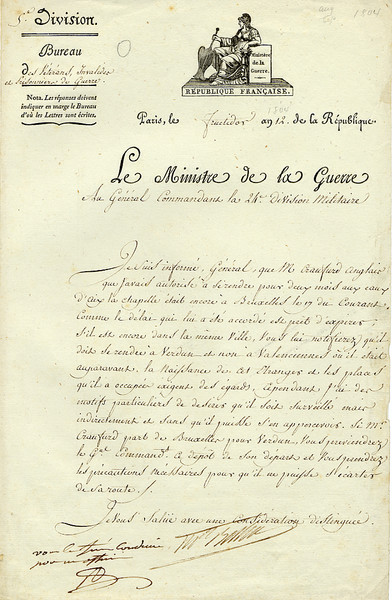 5e. Division.
aug
1804
Bureau
Des Vétérans, Invalides
et Prisonniers de Guerre.
Nota. Les réponses doivent
indiquer en marge le Bureau
d'où les Lettres sont écrites.
Ministère
de la
Guerre.
RÉPUBLIQUE FRANÇAISE.
1804
Paris, le fructidor an 12 de la République.
Le Ministre de la Guerre
Au Général Commandant la 24e. Division Militaire
Je suis informé, Général, que Mr Craufurd anglais
que j'avais autorisé à se rendre pour deux mois aux eaux
d'Aix la chapelle était encore à Bruxelles le 17 du Courant.
Comme le délai qui lui a été accordé est prêt d'expirer,
s'il est encore dans la même Ville, Vous lui notifierez qu'il
doit se rendre à Verdun et non à Valenciennes où il était
auparavant. la Naissance de cet Etranger et les places
qu'il a occupées exigent des égards, cependant j'ai des
motifs particuliers de désirer qu'il soit surveillé mais
indirectement et sans qu'il puisse s'en appercevoir. Si Mr.
Craufurd part de Bruxelles pour Verdun, Vous préviendrez
le Gal. Command. ce dépôt de son départ et Vous prendrez
les précautions nécessaires pour qu'il ne puisse s'écarter
de sa route ./.
Je Vous Salue avec une Considération distinguée.